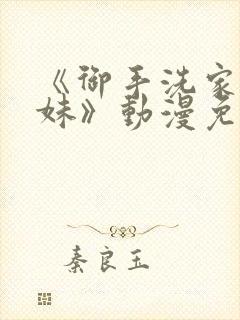 《御手洗家
妹》動漫免
秦良玉